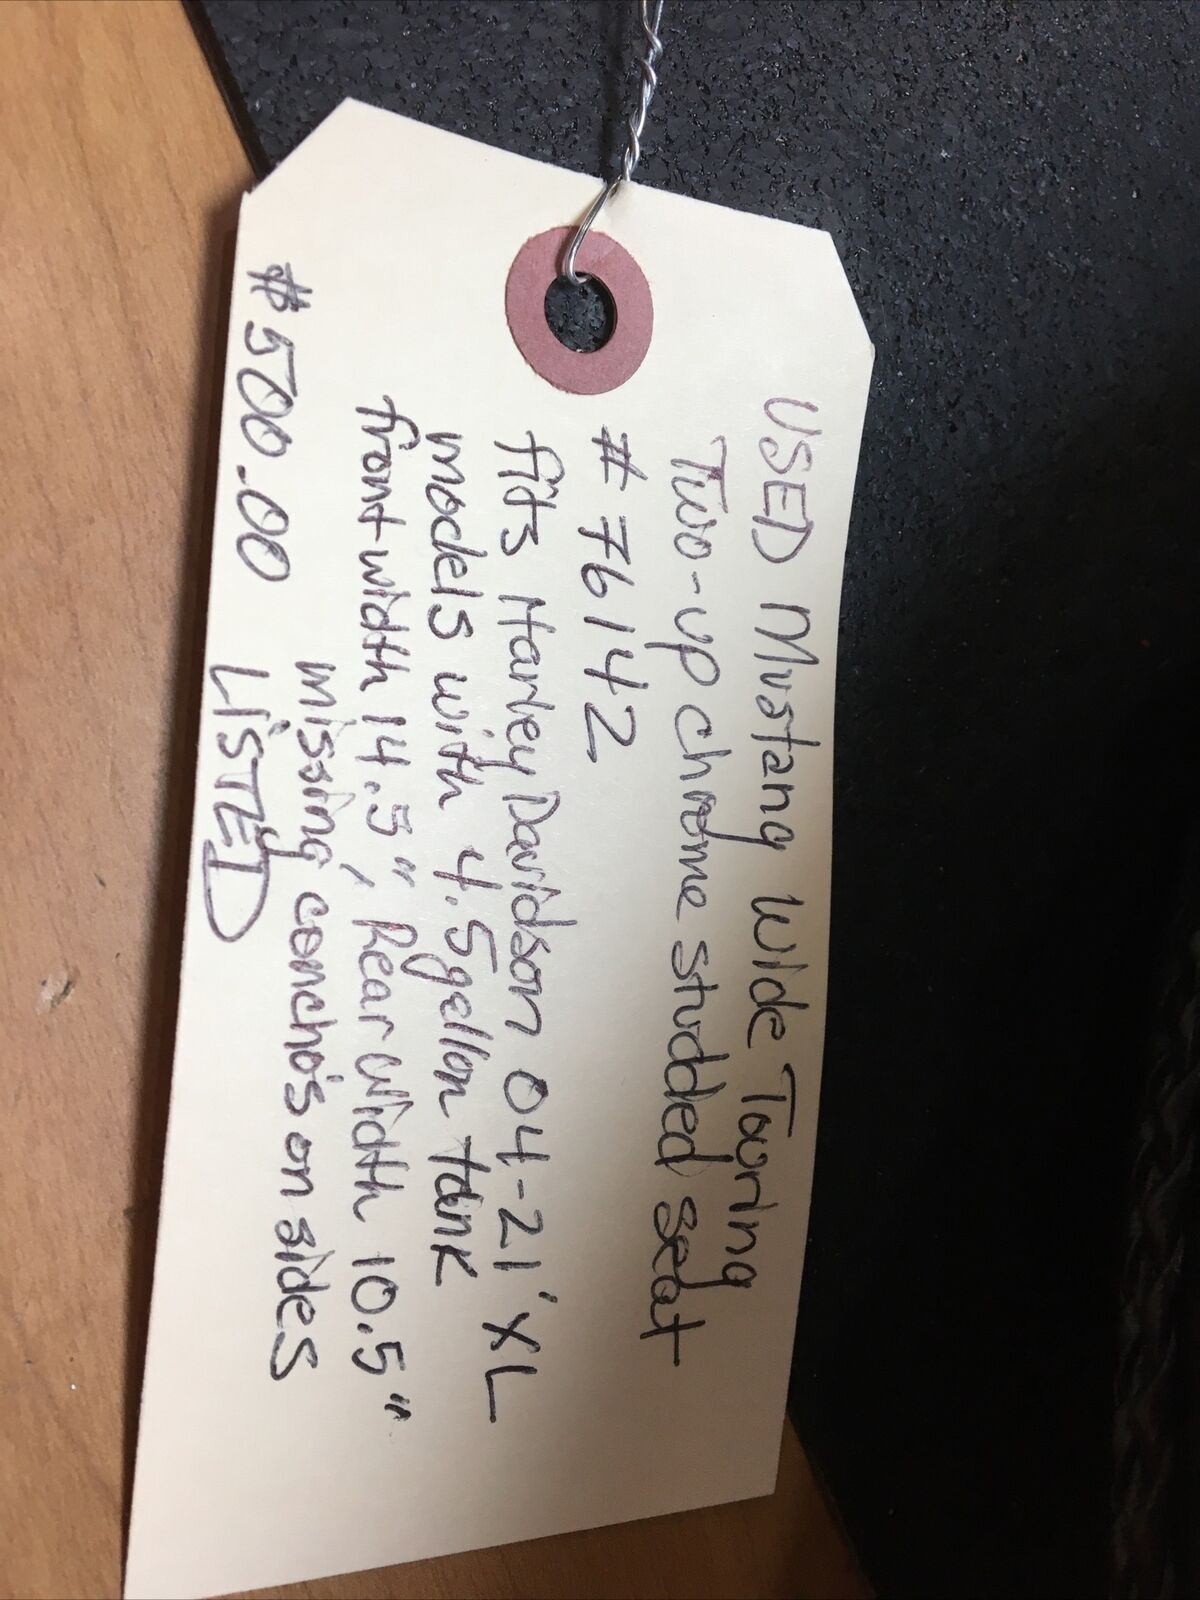 USED Mustang Wide Touring
Two-up chrome studded seat
# 76142
fits Harley Davidson 04-21' XL
models with 4.5 gallon tank
front width 14.5", Rear width 10.5"
missing concho's on sides
$500.00 LISTED